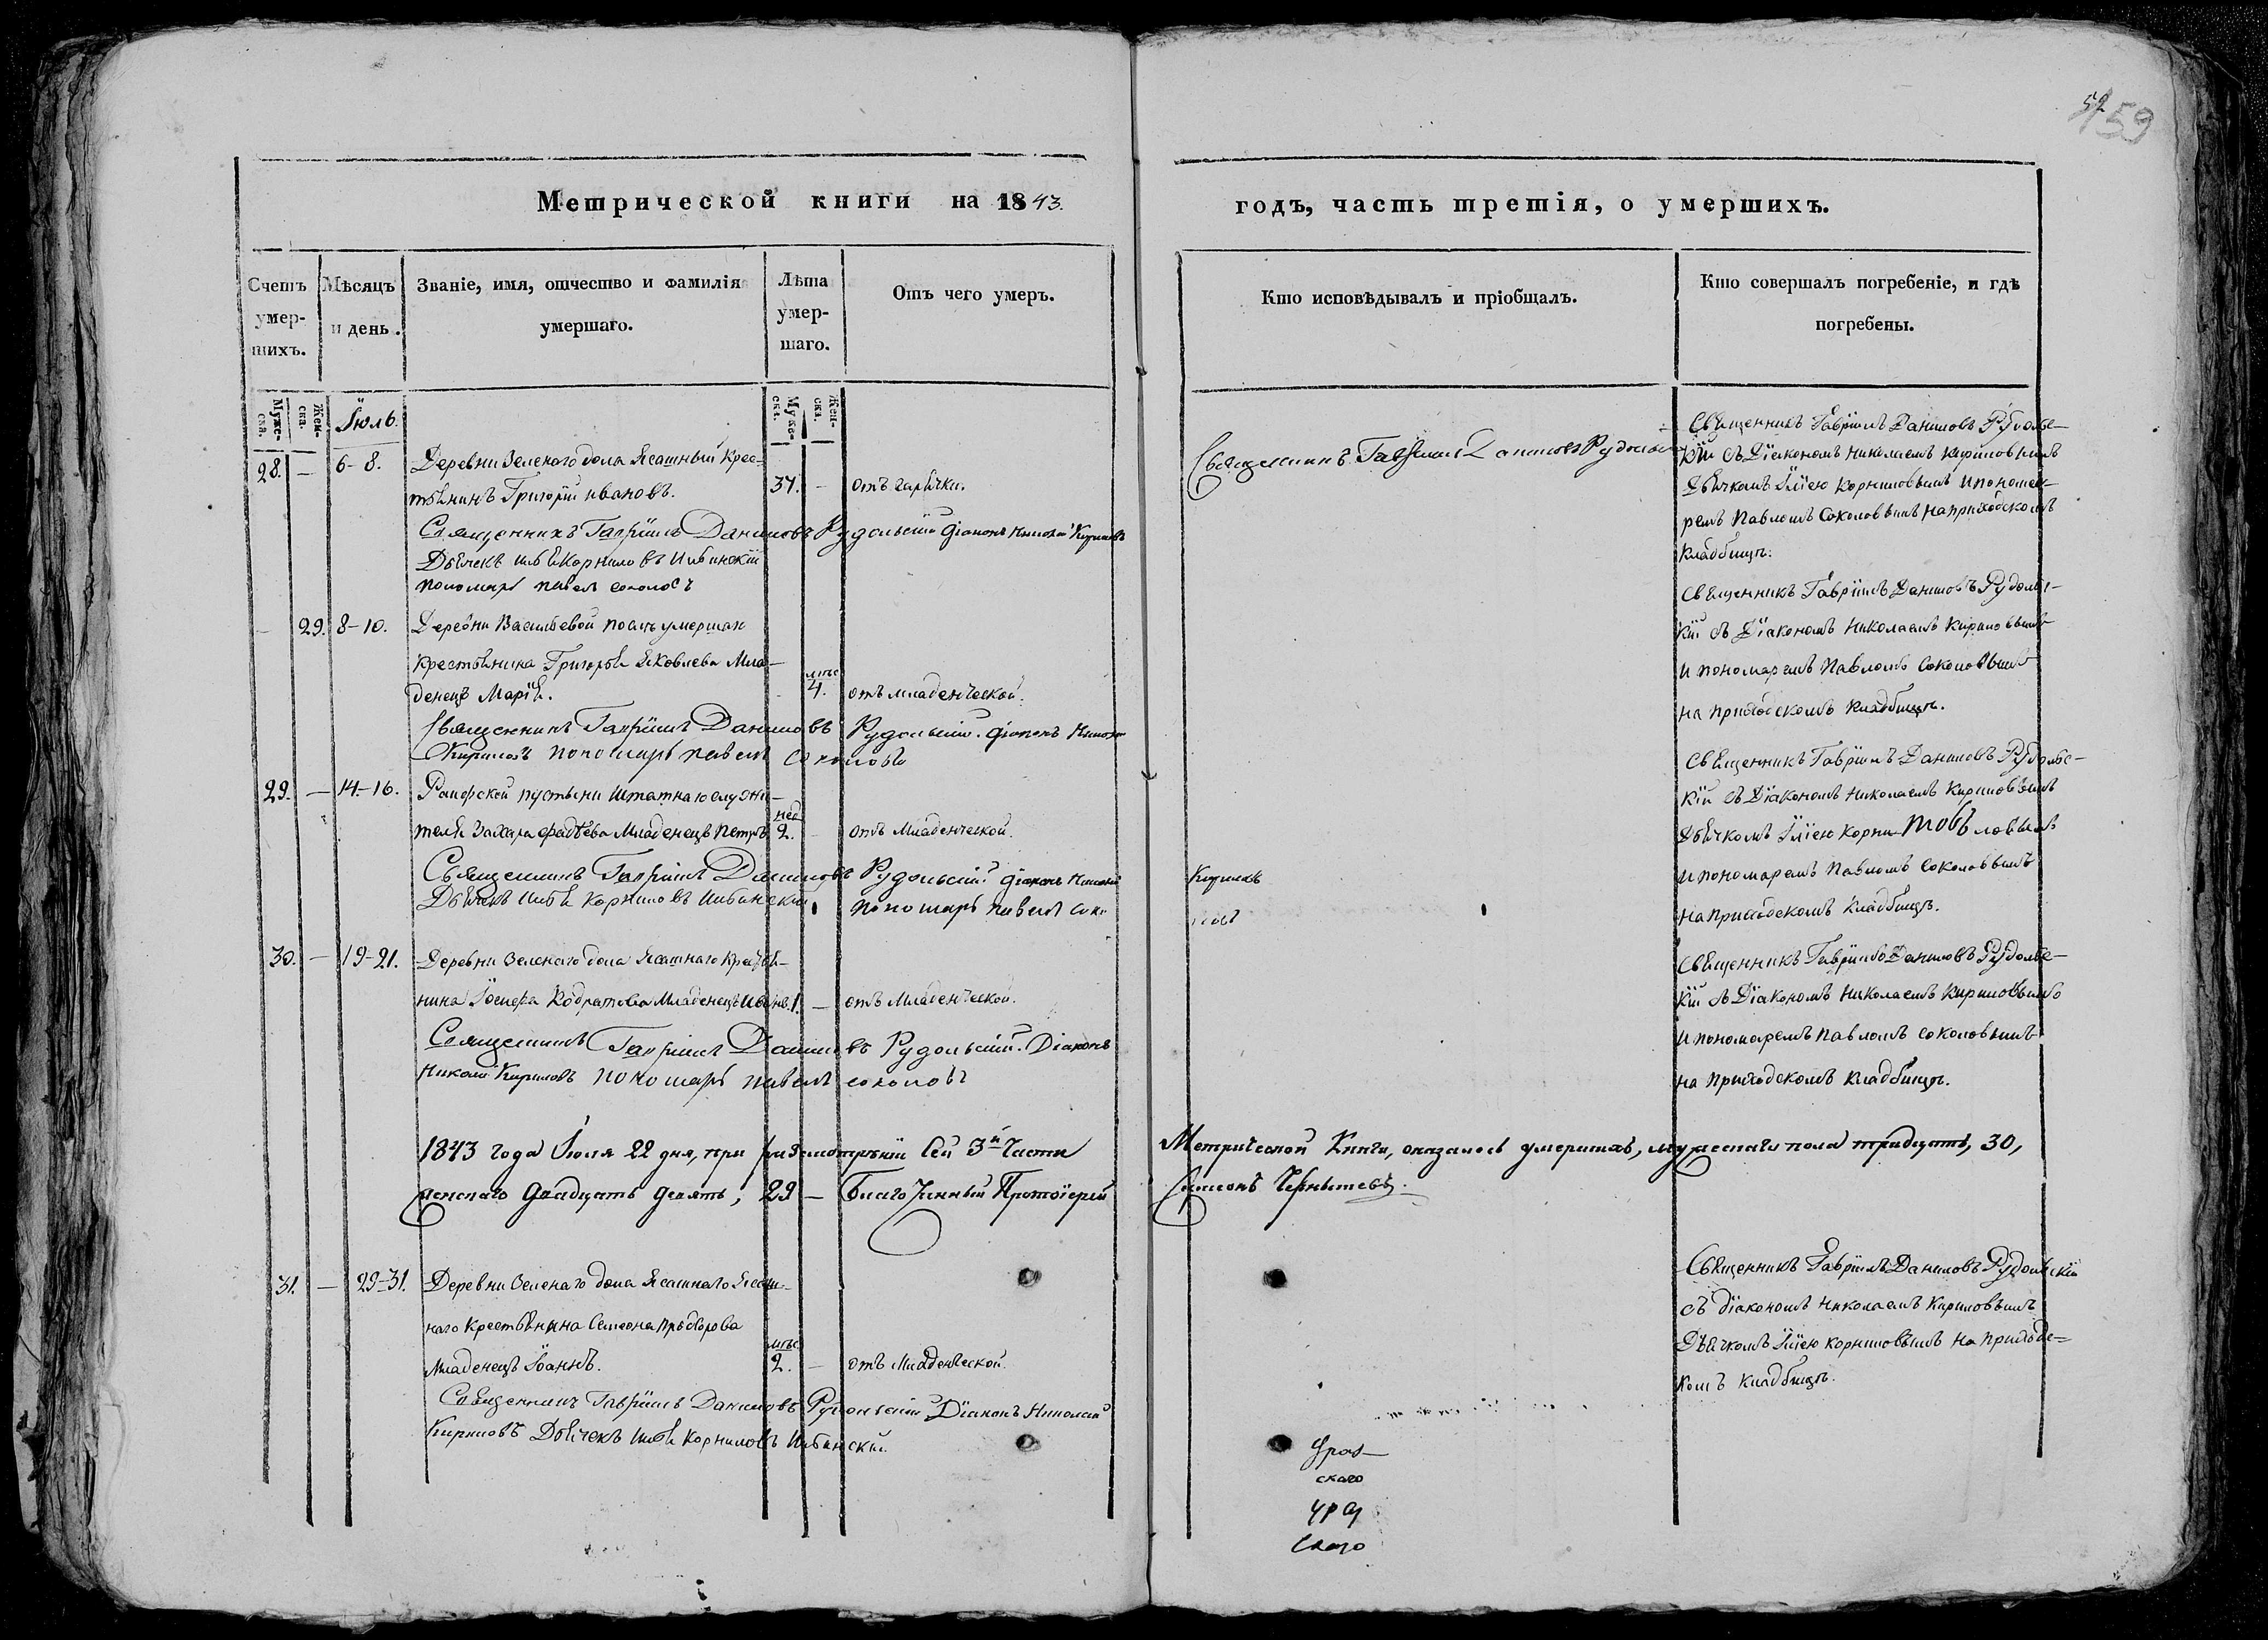 52
459
Метрической книги на 1843.
годъ, часть третія, о умершихъ.
Счетъ умер-шихъ.
Мѣсяцъ и день.
Званіе, имя, отчество и фамилія умершаго.
Лѣта умер-шаго.
Отъ чего умеръ.
Кто исповѣдывалъ и пріобщалъ.
Кто совершалъ погребеніе, и гдѣ погребены.
Муже-ска.
Жен-ска.
Іюль.
Муже-ска.
Жен-ска.
28. — 6-8. Деревни Зеленаго дола Ясашный Крес-
тьянинъ Григорій Ивановъ. 37. — отъ горячки.
Священникъ Гавріилъ Даниловъ Рудольскій Діаконъ Николай Кириловъ
Дьячекъ Илья Корниловъ
пономарь Павелъ Соколовъ
Священникъ Гавріилъ Даниловъ Рудольскій
Священникъ Гавріилъ Даниловъ Рудольс-
кій съ Діакономъ Николаемъ Кириловымъ
Дьячкомъ Іліею Корниловымъ и понома-
ремъ Павломъ Соколовымъ на приходскомъ
кладбищѣ.
— 29. 8-10. Деревни Васильевой
крестьянина Григорья Яковлева Мла-
денецъ Марія. мѣс 4. отъ младенческой.
Священникъ Гавріилъ Даниловъ Рудольскій. діаконъ Николай
Кириловъ пономарь Павелъ Соколовъ
Священникъ Гавріилъ Даниловъ Рудольс-
кій съ Діакономъ Николаемъ Кириловымъ
и пономаремъ Павломъ Соколовымъ
на приходскомъ кладбищѣ.
29. — 14-16. Раифской пустыни Штатнаго служи-
теля Захара Фадѣева Младенецъ Петръ нед 2. — отъ Младенческой.
Священникъ Гавріилъ Даниловъ Рудольскій діаконъ Николай Кириловъ
Дьячекъ Илья Корниловъ пономарь Павелъ Соко
Священникъ Гавріилъ Даниловъ Рудольс-
кій съ Діакономъ Николаемъ Кириловымъ
Дьячкомъ Іліею Корни ловымъ
и пономаремъ Павломъ Соколовымъ
на приходскомъ кладбищѣ.
30. — 19-21. Деревни Зеленаго дола Ясашнаго Крестья-
нина Іосифа Кодратова Младенецъ Иванъ 1. — отъ Младенческой.
Священникъ Гавріилъ Даниловъ Рудольскій. Діаконъ
Николай Кириловъ пономарь Павелъ Соколовъ
Священникъ Гавріилъ Даниловъ Рудольс-
кій съ Діакономъ Николаемъ Кириловымъ
и пономаремъ Павломъ Соколовымъ
на приходскомъ кладбищѣ.
1843 года Іюля 22 дня, при разсмотрѣніи сей 3й Части Метрической Книги, оказалось умершихъ, мужескаго пола тридцать, 30,
женскаго двадцать девять, 29 — Благочинный Протоіерей Симеонъ Чернышевъ.
31. — 29-31. Деревни Зеленаго дола Ясашнаго Ясаш-
наго Крестьянина Семеона
Младенецъ Іоаннъ. мѣс. 2. — отъ Младенческой.
Священникъ Гавріилъ Даниловъ Рудольскій Діаконъ Николай
Кириловъ Дьячекъ Илья Корниловъ
Священникъ Гавріилъ Даниловъ Рудольскій
съ діакономъ Николаемъ Кириловымъ
Дьячкомъ Іліею Корниловымъ на приходс-
комъ кладбищѣ.
скаго
скаго